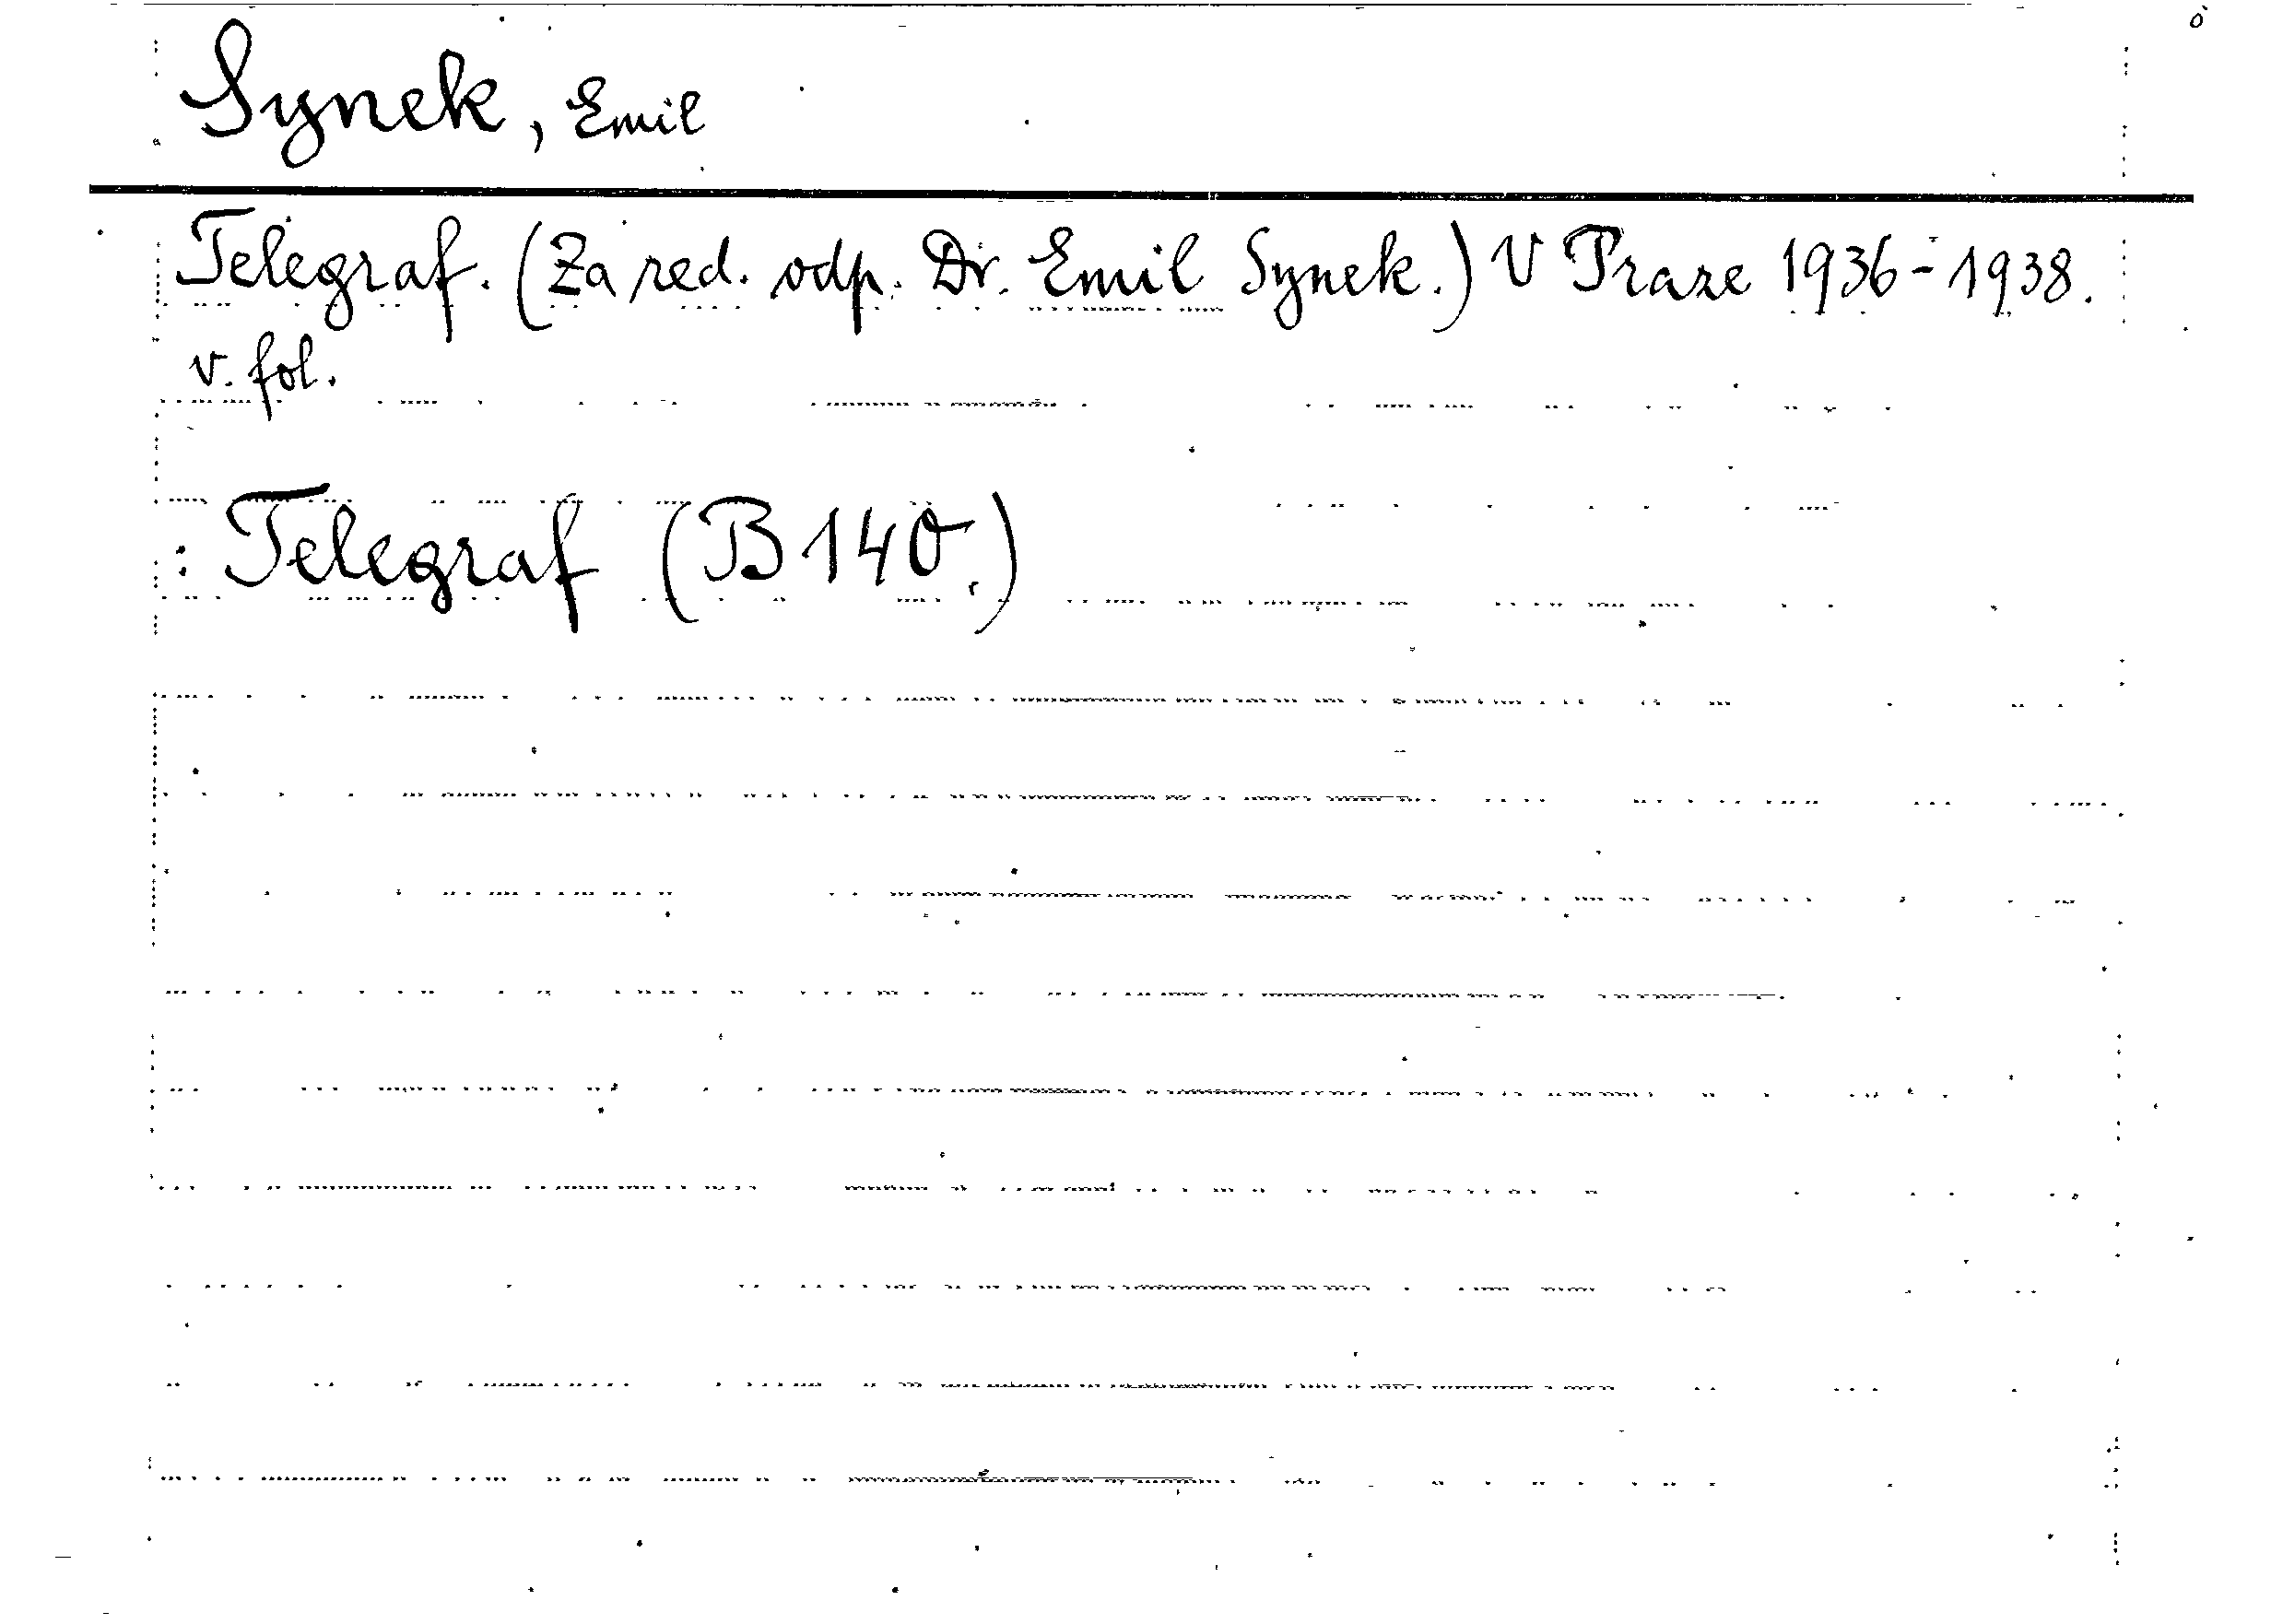 Synek, Emil
Telegraf. (Za red. odp. Dr. Emil Synek.) V Praze 1936-1938.
v. fol.
: Telegraf (B 140.)